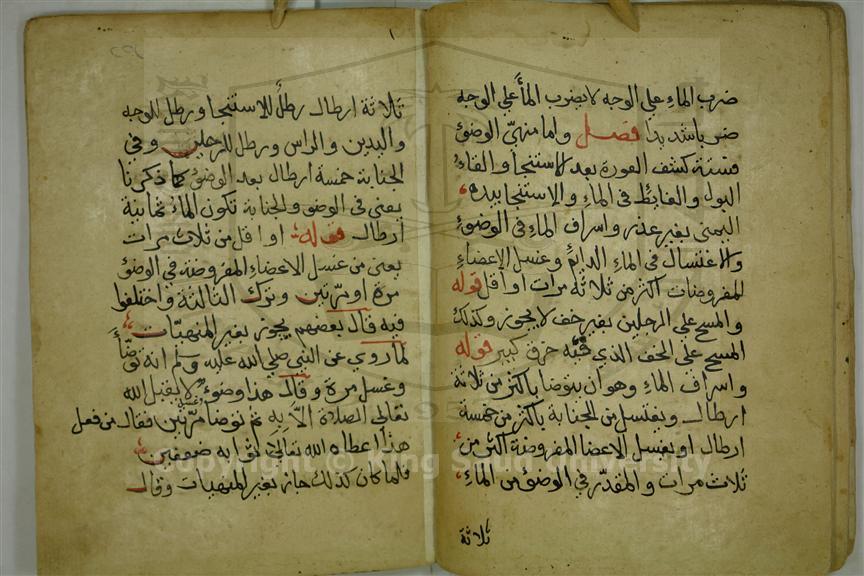 ضرب الماء علي الوجه لا يضرب الماء علي الوجه
ضربا شديدا فصل واما منهيّ الوضوء
فستة كشف العورة بعد الاستنجا والقاء
البول والغايط في الماء والاستنجا بيده
اليمني بغير عذر واسراف الماء في الوضوء
والاغتسال في الماء الدايم وغسل الاعضاء
المفروضات اكثر من ثلاثة مرات او اقل قوله
والمسح علي الرجلين بغير خف لا يجوز وكذلك
المسح علي الخف الذي فيه خرق كبير قوله
واسراف الماء وهو ان يتوضا باكثر من ثلاثة
ارطال ويغتسل من الجنابة باكثر من خمسة
ارطال او يغسل الاعضا المفروضة اكثر من
ثلاث مرات والمقدّر في الوضوء من الماء
ثلاثة
١
ثلاثة ارطال رطلٌ للاستنجا ورطل للوجه
واليدين والراس ورطل للرجلين وفي
الجنابة خمسة ارطال بعد الوضوء كما ذكرنا
يعني في الوضوء والجنابة تكون الماء ثمانية
ارطال قوله او اقل من ثلاث مرات
يعني من غسل الاعضاء المفروضة في الوضوء
مرة او مرّتين وترك الثالثة واختلفوا
فيه قال بعضهم يجوز بغير المنهيات
لما روي عن النبي صلي الله عليه وسلم انه توضّأ
وغسل مرة وقال هذا وضوء لا يقبل الله
تعالي الصلاة الّا به ثم توضا مرّتين فقال من فعل
هذا اعطاه الله تعالي ثوابه ضعفين
فلما كان كذلك جاز بغير المنهيات وقال
Copyright © King Saud University